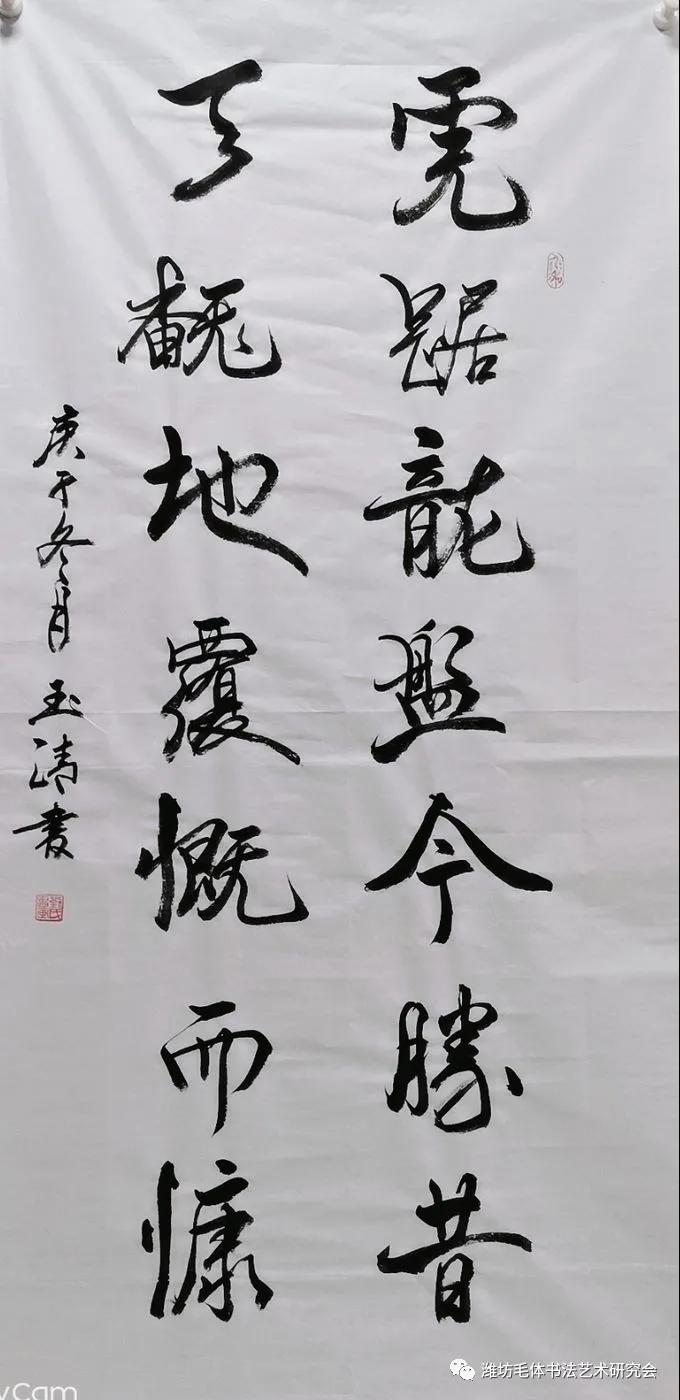 虎踞龍盤今勝昔
天翻地覆慨而慷
庚子冬月 玉清書
潍坊毛体书法艺术研究会
yCam